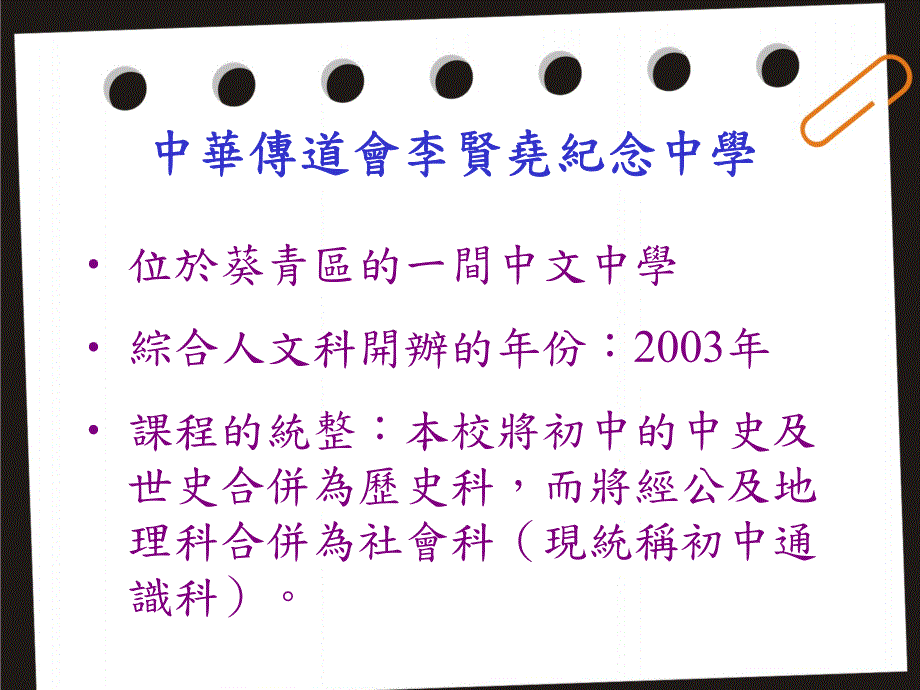 中華傳道會李賢堯紀念中學
• 位於葵青區的一間中文中學
• 綜合人文科開辦的年份：2003年
• 課程的統整：本校將初中的中史及
世史合併為歷史科，而將經公及地
理科合併為社會科（現統稱初中通
識科）。